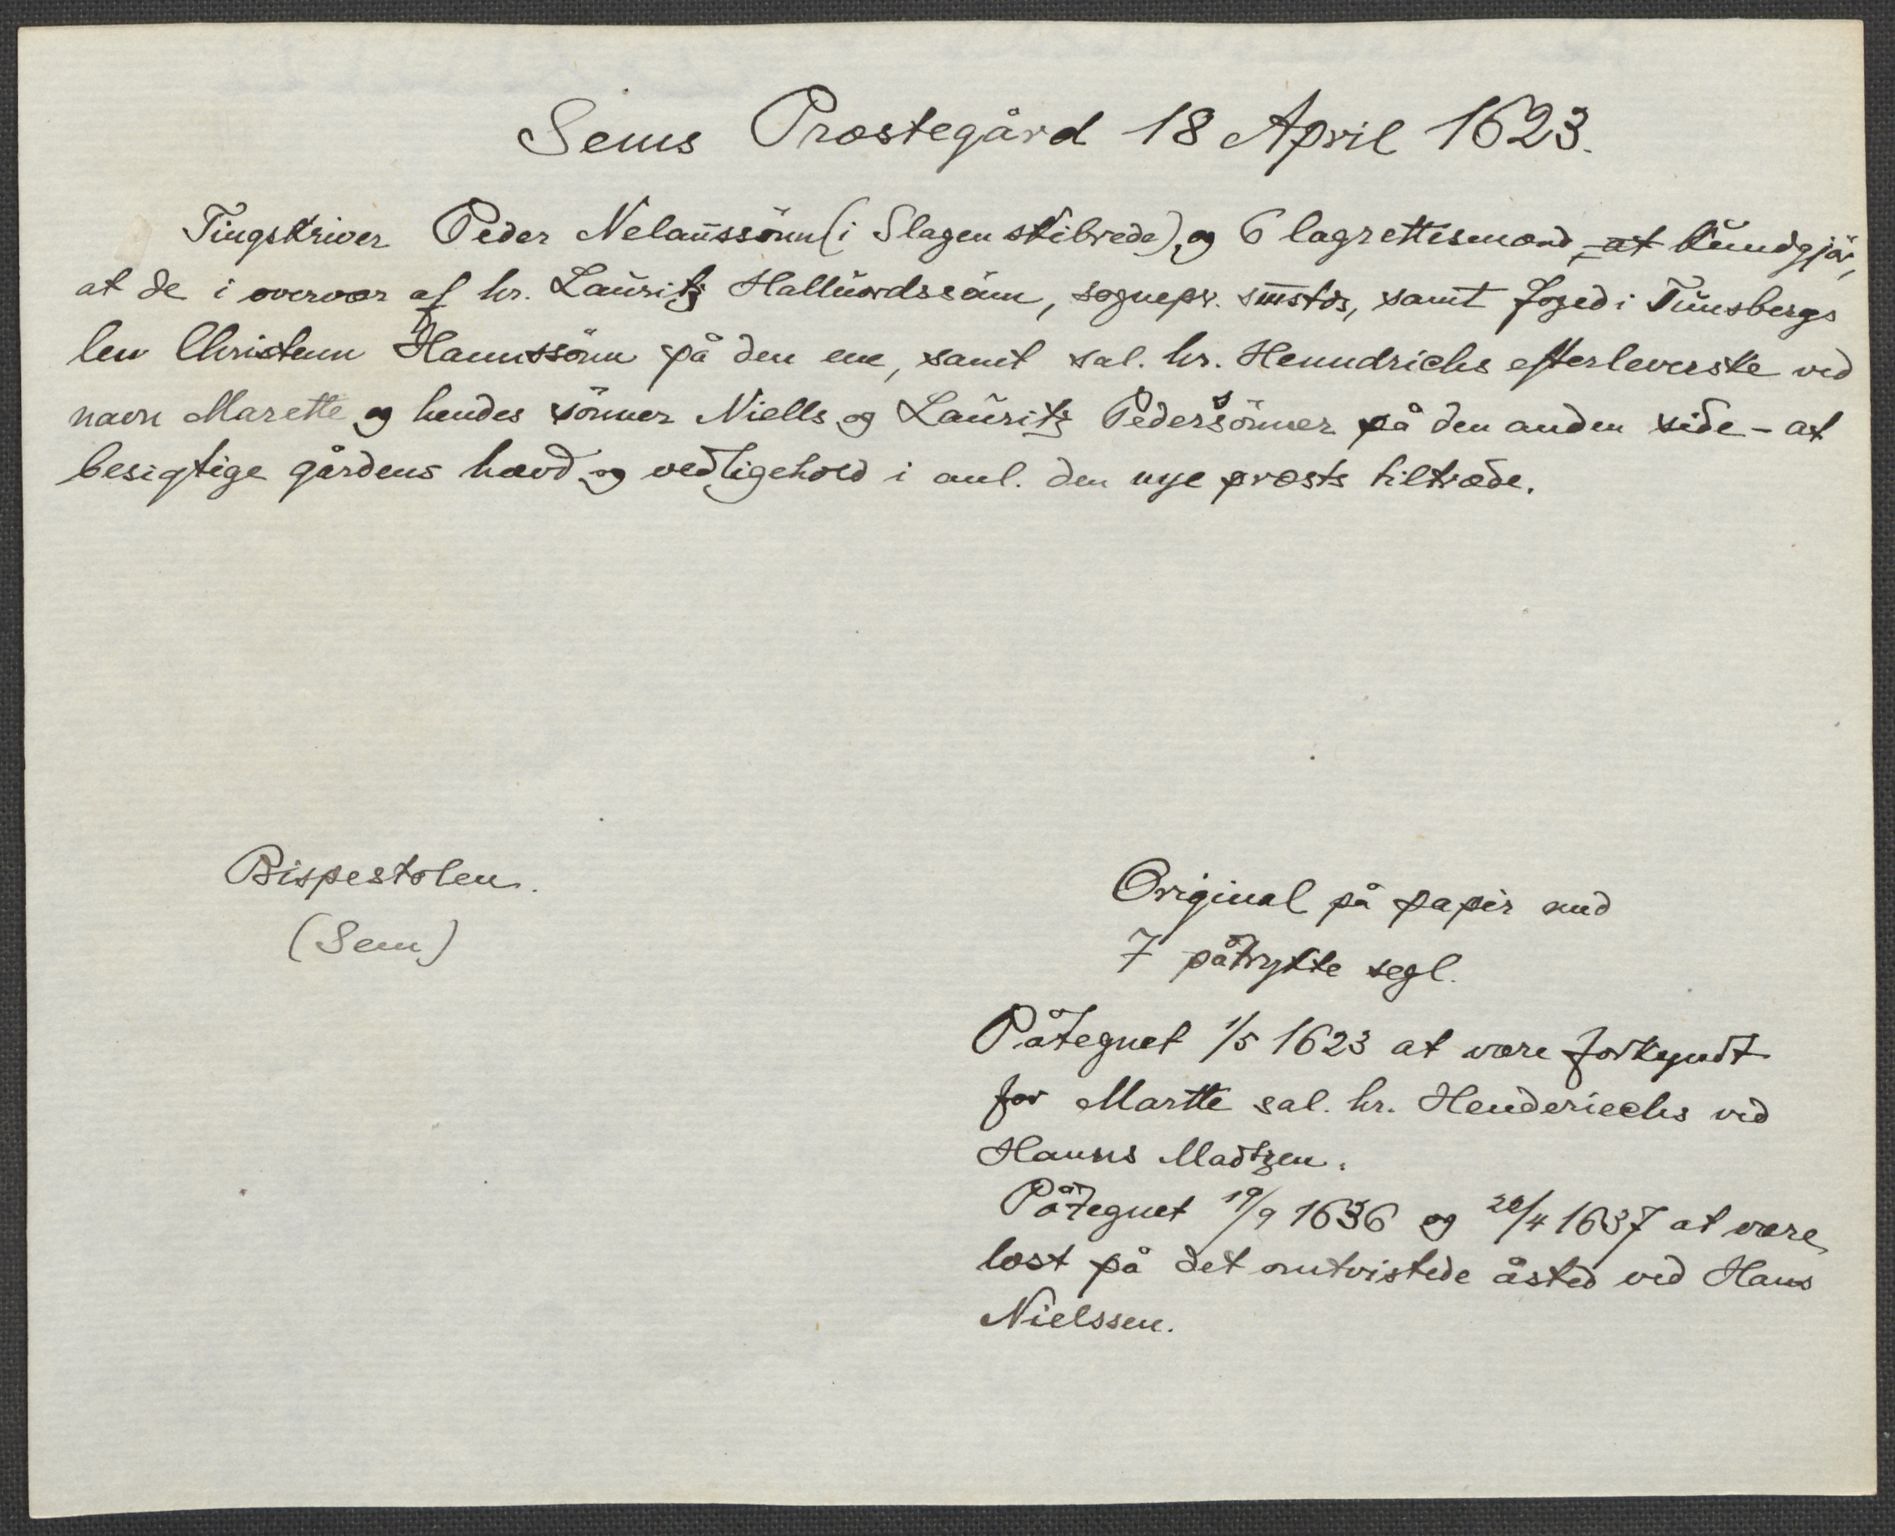 Sems Præstegård 18 April 1623.
Tingskriver Peder Nelaussönn (i Slagen skibrede), og 6 lagrettismænd, at kundgjör,
at de i overvær af hr. Lauritz Halluordssönn, sognepr. smstds, samt foged i Tunsbergs
len Christenn Hannssönn på den ene, samt sal. hr. Henndrichs efterleverske ved
navn Marette og hendes sönner Niells og Lauritz Pederssönner på den anden side - at
besigtige gårdens hævd og vedligehold i anl. den nye præsts tiltræde.
Bispestolen.
(Sem)
Original på papir med
7 påtrykte segl.
Påtegnet 1/5 1623 at være forkyndt
for Martte sal. hr. Henderiechs ved
Hanns Madtzen.
Påtegnet 19/9 1636 og 20/4 1637 at være
læst på det omtvistede åsted ved Hans
Nielssen.